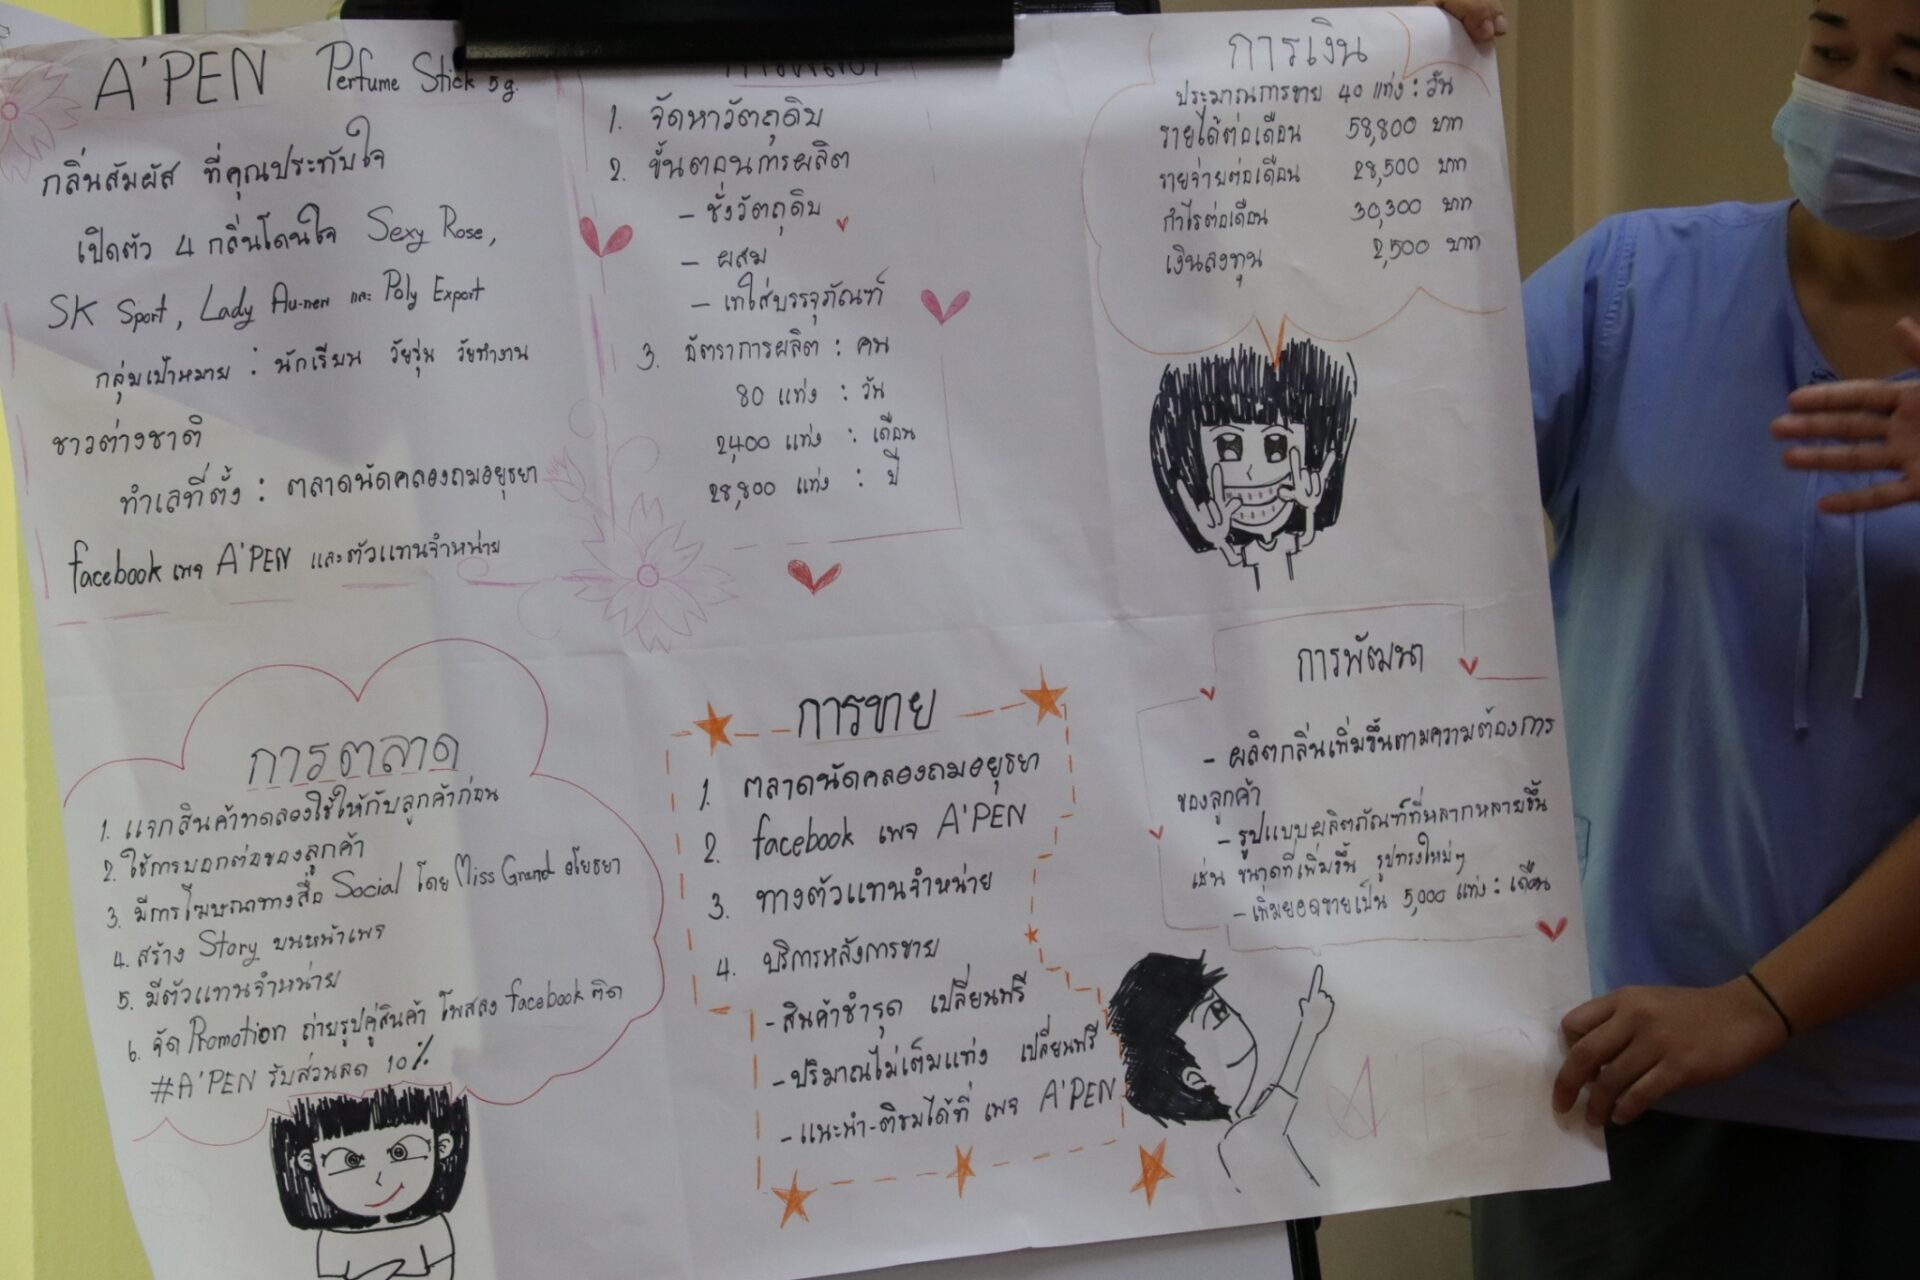 A'PEN Perfume Stick 5g.
กลิ่นสัมผัส ที่คุณประทับใจ
เปิดตัว 4 กลิ่นโดนใจ Sexy Rose,
SK Sport, Lady Au-nen และ Poly Export
กลุ่มเป้าหมาย : นักเรียน วัยรุ่น วัยทำงาน
ชาวต่างชาติ
ทำเลที่ตั้ง : ตลาดนัดคลองถมอยุธยา
facebook เพจ A'PEN และตัวแทนจำหน่าย
การผลิต
1. จัดหาวัตถุดิบ
2. ขั้นตอนการผลิต
- ชั่งวัตถุดิบ
- ผสม
- เทใส่บรรจุภัณฑ์
3. อัตราการผลิต : คน
80 แท่ง : วัน
2,400 แท่ง : เดือน
28,800 แท่ง : ปี
การเงิน
ประมาณการขาย 40 แท่ง : วัน
รายได้ต่อเดือน 58,800 บาท
รายจ่ายต่อเดือน 28,500 บาท
กำไรต่อเดือน 30,300 บาท
เงินลงทุน 2,500 บาท
การตลาด
1. แจกสินค้าทดลองใช้ให้กับลูกค้าก่อน
2. ใช้การบอกต่อของลูกค้า
3. มีการโฆษณาทางสื่อ Social โดย Miss Grand อโยธยา
4. สร้าง Story บนหน้าเพจ
5. มีตัวแทนจำหน่าย
6. จัด Promotion ถ่ายรูปคู่สินค้า โพสลง facebook ติด
#A'PEN รับส่วนลด 10%
การขาย
1. ตลาดนัดคลองถมอยุธยา
2. facebook เพจ A'PEN
3. ทางตัวแทนจำหน่าย
4. บริการหลังการขาย
- สินค้าชำรุด เปลี่ยนฟรี
- ปริมาณไม่เต็มแท่ง เปลี่ยนฟรี
- แนะนำ-ติชมได้ที่ เพจ A'PEN
การพัฒนา
- ผลิตกลิ่นเพิ่มขึ้นตามความต้องการ
ของลูกค้า
- รูปแบบผลิตภัณฑ์ที่หลากหลายขึ้น
เช่น ขนาดที่เพิ่มขึ้น รูปทรงใหม่ๆ
- เพิ่มยอดขายเป็น 5,000 แท่ง : เดือน
A'PE